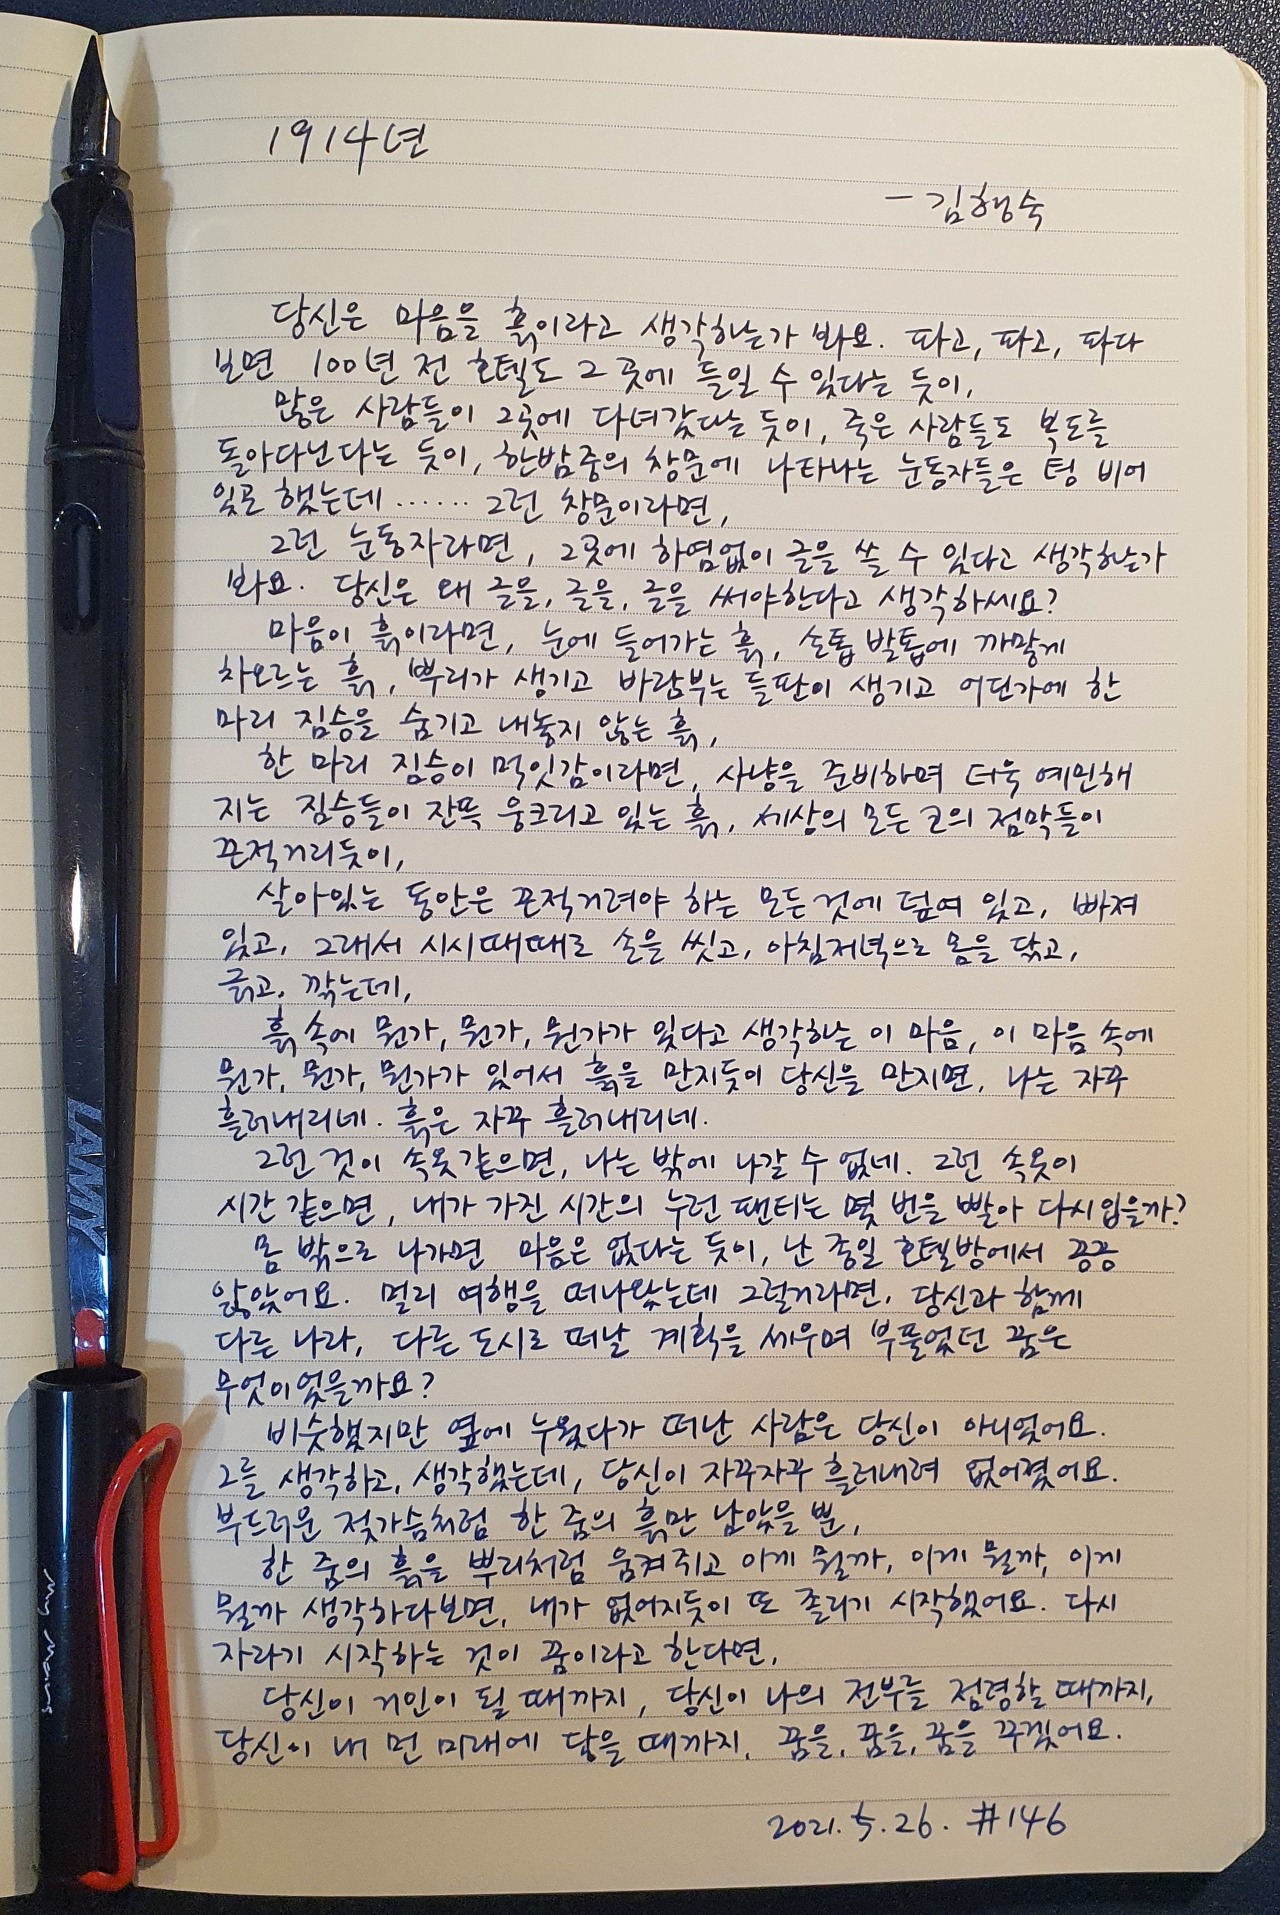 1914년
- 김행숙
당신은 마음을 흙이라고 생각하는가 봐요. 파고, 파고, 파다
보면 100년 전 호텔도 그 곳에 들일 수 있다는 듯이,
많은 사람들이 그곳에 다녀갔다는 듯이, 죽은 사람들도 복도를
돌아다닌다는 듯이, 한밤중의 창문에 나타나는 눈동자들은 텅 비어
있곤 했는데 ...... 그런 창문이라면,
그런 눈동자라면, 그곳에 하염없이 글을 쓸 수 있다고 생각하는가
봐요. 당신은 왜 글을, 글을, 글을 써야한다고 생각하세요?
마음이 흙이라면, 눈에 들어가는 흙, 손톱 발톱에 까맣게
차오르는 흙, 뿌리가 생기고 바람부는 들판이 생기고 어딘가에 한
마리 짐승을 숨기고 내놓지 않는 흙,
한 마리 짐승이 먹잇감이라면, 사냥을 준비하며 더욱 예민해
지는 짐승들이 잔뜩 웅크리고 있는 흙, 세상의 모든 코의 점막들이
끈적거리듯이,
살아있는 동안은 끈적거려야 하는 모든 것에 덮여 있고, 빠져
있고, 그래서 시시때때로 손을 씻고, 아침저녁으로 몸을 닦고,
긁고, 깎는데,
흙 속에 뭔가, 뭔가, 뭔가가 있다고 생각하는 이 마음, 이 마음 속에
뭔가, 뭔가, 뭔가가 있어서 흙을 만지듯이 당신을 만지면, 나는 자꾸
흘러내리네. 흙은 자꾸 흘러내리네.
그런 것이 속옷 같으면, 나는 밖에 나갈 수 없네. 그런 속옷이
시간 같으면, 내가 가진 시간의 누런 팬티는 몇 번을 빨아 다시 입을까?
몸 밖으로 나가면 마음은 없다는 듯이, 난 종일 호텔방에서 끙끙
앓았어요. 멀리 여행을 떠나왔는데 그럴거라면, 당신과 함께
다른 나라, 다른 도시로 떠날 계획을 세우며 부풀었던 꿈은
무엇이었을까요?
비슷했지만 옆에 누웠다가 떠난 사람은 당신이 아니었어요.
그를 생각하고, 생각했는데, 당신이 자꾸자꾸 흘러내려 없어졌어요.
부드러운 젖가슴처럼 한 줌의 흙만 남았을 뿐,
한 줌의 흙을 뿌리처럼 움켜쥐고 이게 뭘까, 이게 뭘까, 이게
뭘까 생각하다보면, 내가 없어지듯이 또 졸리기 시작했어요. 다시
자라기 시작하는 것이 꿈이라고 한다면,
당신이 거인이 될 때까지, 당신이 나의 전부를 점령할 때까지,
당신이 내 먼 미래에 닿을 때까지, 꿈을, 꿈을, 꿈을 꾸겠어요.
2021.5.26. #146
LAMY